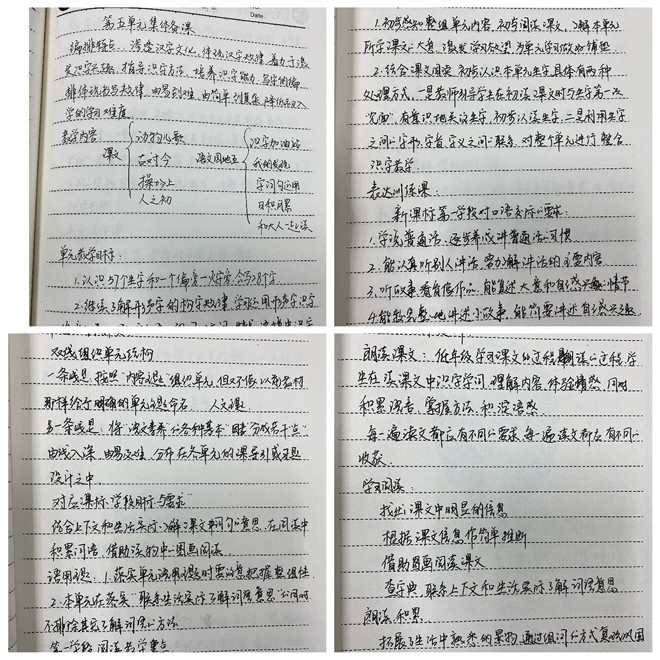 Date
第五单元集体备课
编排特点：渗透汉字文化，体现汉字规律，着力于激
发识字兴趣，指导识字方法，培养识字能力，写字的编
排体现出写规律，由易到难，由简单到复杂，降低写入
学的学习难度
教学内容
课文
动物儿歌
古对今
操场上
人之初
语文园地五
识字加油站
我的发现
字词句运用
日积月累
和大人一起读
单元教学目标：
1.认识57个生字和一个偏旁，会写28个字
2.继续了解形声字的构字规律，学习运用形声字识字
1.初步感知整组单元内容，初步阅读课文，了解本单元
所学课文的人文，激发学习欲望，为单元学习做好铺垫
2.结合课文阅读，初步认识本单元生字，具体有两种
处理方式，一是教师引导学生在初读课文时与生字第一次
见面，有意识地关注生字，初步认读生字，二是利用生字
之间的字形、字音、字义之间的联系，对整个单元进行整合
识字教学
表达训练课：
新课标第一学段对口语交际的要求：
1.学说普通话，逐步养成讲普通话的习惯
2.能认真听别人讲话，努力了解讲话的主要内容
3.听故事看音像作品，能复述大意和自己感兴趣的情节
4.能较完整地讲述小故事，能简要讲述自己感兴趣
双线组织单元结构
一条线是：按照“内容主题”组织单元，但又不像以前教材
那样给予明确的单元主题命名 人文主题
另一条线是：将“语文素养”的各种基本“因素”分成若干点
由浅入深，由易及难，分布在各单元的课后引或习题
设计之中
对应课标“学段目标与要求”
结合上下文和生活实际，了解课文中词句的意思，在阅读中
积累词语，借助读物中的图画阅读
语用主题：1.落实单元语用主题时需注意把握整组性
2.本单元在落实“联系生活实际了解词语意思”的同时
不排除其它了解词语的方法
第一学段阅读教学重点
朗读课文：低年级学习课文的过程就是朗读的过程，学
生在读课文中识字学词，理解内容，体验情感，同时
积累语言，掌握方法，积淀语感
每一遍读文都应有不同的要求，每一遍读文都应有不同的
收获
学习阅读：
找出课文中明显的信息
根据课文信息作简单推断
借助图画阅读课文
查字典，联系上下文和生活实际了解词语意思
朗读积累
拓展了生活中熟悉的事物，通过组词的方式复习巩固